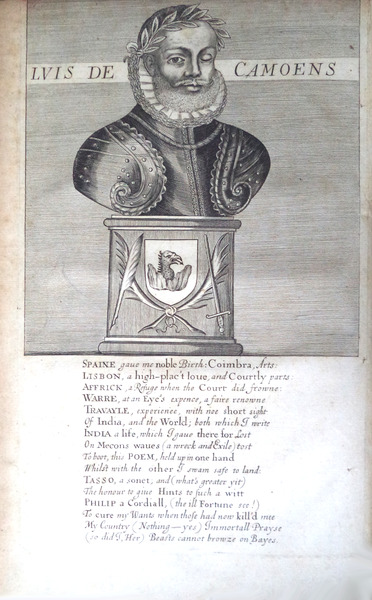 LVIS DE CAMOENS
SPAINE gaue me noble Birth: Coimbra, Arts:
LISBON, a high-plac't loue, and Courtly parts:
AFFRICK, a Refuge when the Court did frowne:
WARRE, at an Eye's expence, a faire renowne:
TRAVAYLE, experience, with noe short sight
Of India, and the World; both which I write
INDIA a life, which I gaue there for Lost
On Mecons waues (a wreck and Exile) tost
To boot, this POEM, held up in one hand
Whilst with the other I swam safe to land:
TASSO, a sonet; and (what's greater yit)
The honour to giue Hints to such a witt
PHILIP a Cordiall, (the ill Fortune see!)
To cure my Wants when those had now kill'd mee
My Country (Nothing—yes) Immortall Prayse
(so did I, Her) Beasts cannot browze on Bayes.